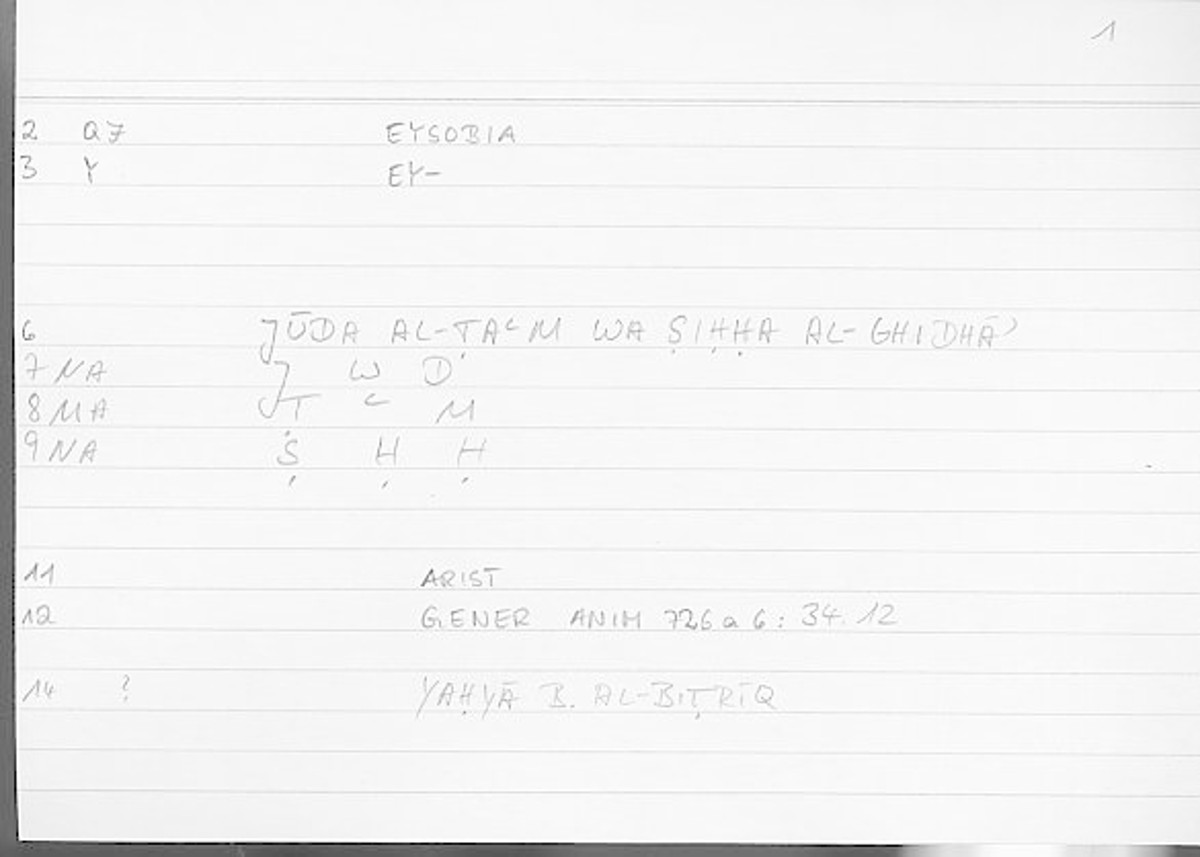 1
2 Q7 EYSOBIA
3 Y EY-
6 JŪDA AL-ṬAᶜM WA ṢIḤḤA AL-GHIDHĀʾ
7 NA J W D
8 MA Ṭ ᶜ M
9 NA Ṣ Ḥ Ḥ
11 ARIST
12 GENER ANIM 726 a 6 : 34.12
14 ? YAḤYĀ B. AL-BIṬRĪQ